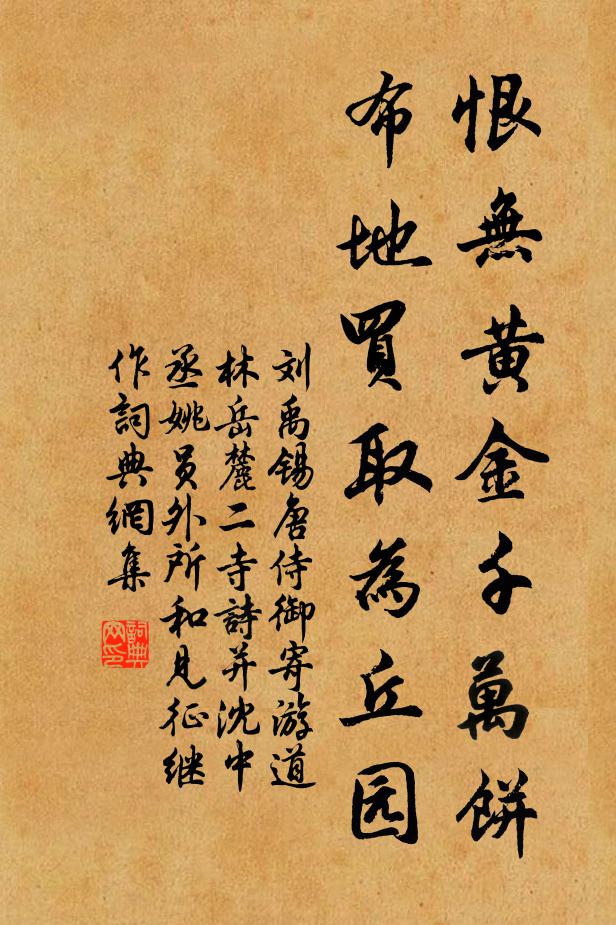 恨無黄金千萬餅
布地買取為丘园
刘禹锡唐侍御寄游道
林岳麓二寺詩并沈中
丞姚員外所和見征继
作詞典網集
詞典
网印